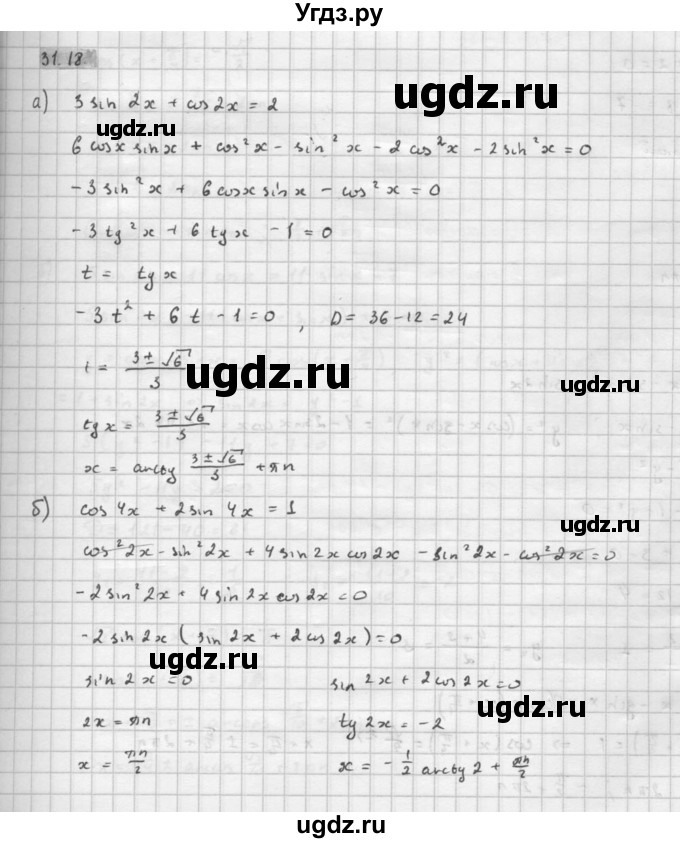 Угдз.ру
31.18.
а) 3 sin 2x + cos 2x = 2
ugdz.ru
ugdz.ru
6 cosx sinx + cos²x - sin²x - 2 cos²x - 2 sin²x = 0
- 3 sin²x + 6 cosx sinx - cos²x = 0
- 3 tg²x + 6 tgx - 1 = 0
t = tgx
- 3t² + 6t - 1 = 0, D = 36 - 12 = 24
t = (3 ± √6)/3
ugdz.ru
ugdz.ru
tgx = (3 ± √6)/3
x = arctg (3 ± √6)/3 + πn
б) cos 4x + 2 sin 4x = 1
ugdz.ru
cos²2x - sin²2x + 4 sin 2x cos 2x - sin²2x - cos²2x = 0
- 2 sin²2x + 4 sin 2x cos 2x = 0
- 2 sin 2x (sin 2x + 2 cos 2x) = 0
ugdz.ru
sin 2x = 0 sin 2x + 2 cos 2x = 0
ugdz.ru
2x = πn tg 2x = -2
x = πn/2 x = - 1/2 arctg 2 + πn/2
ugdz.ru